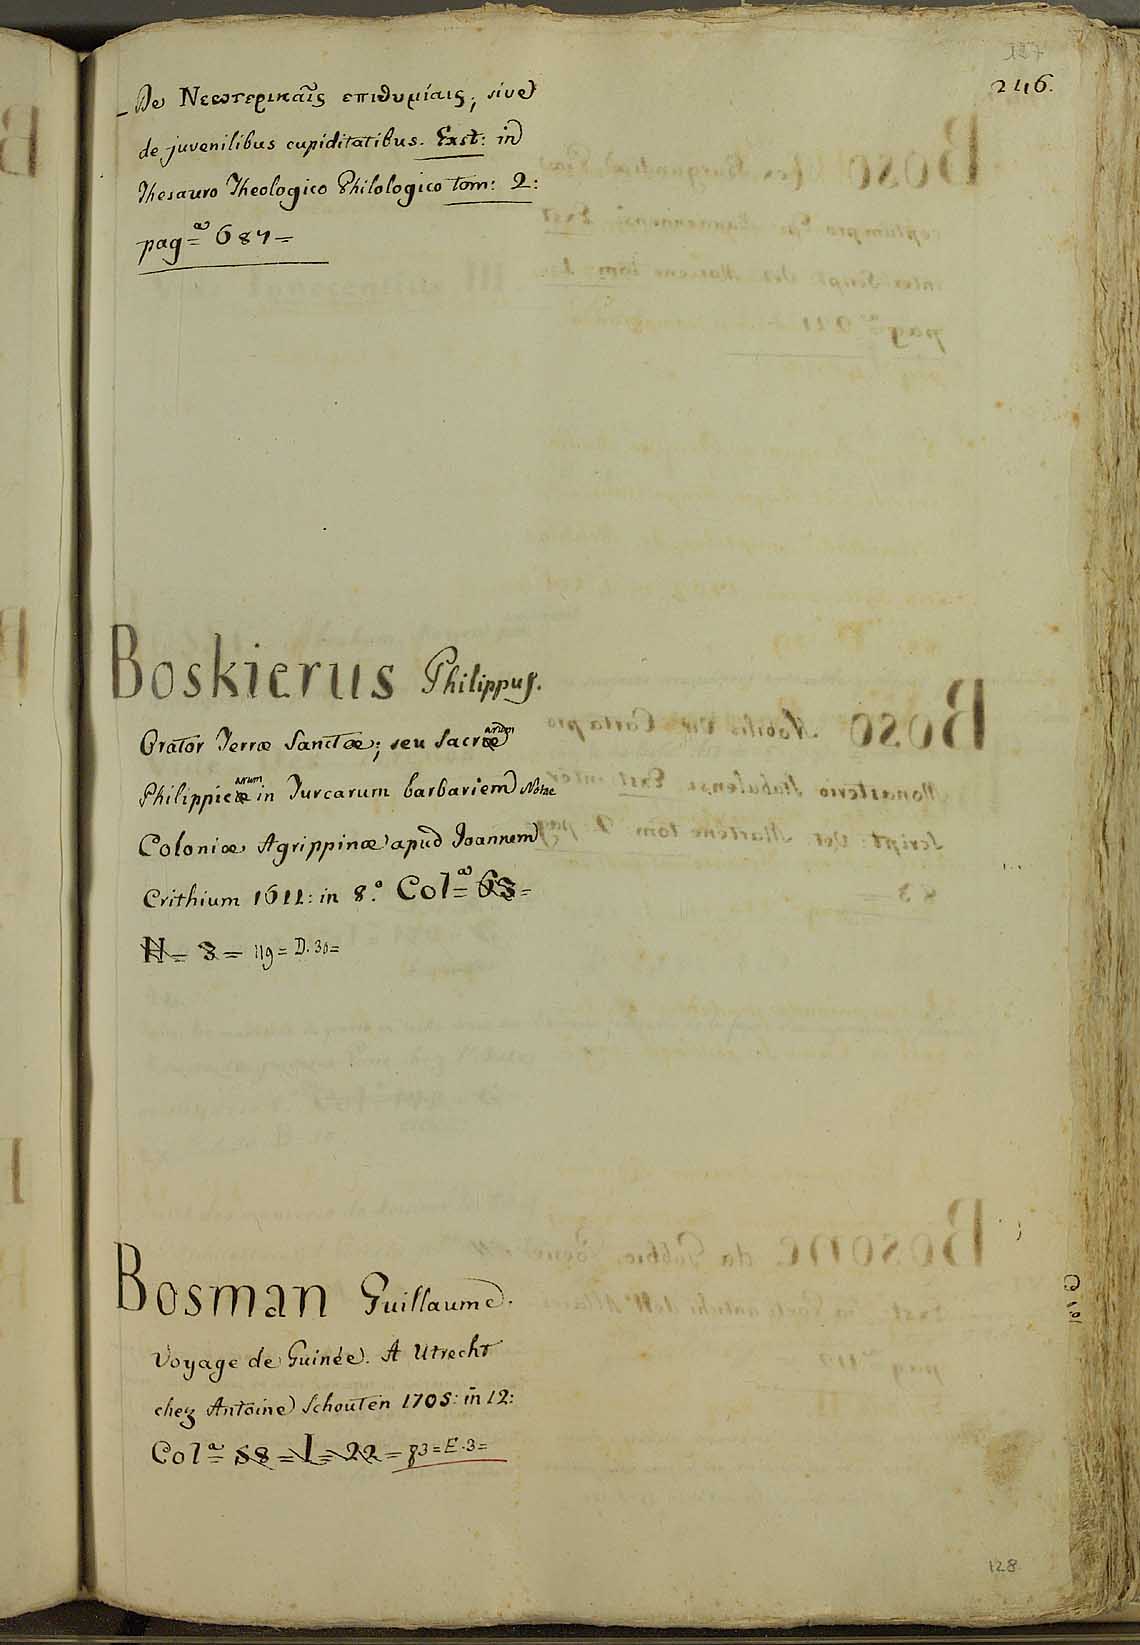 127
246.
_ De Νεωτερικαῖς επιθυμίαις; sive
de juvenilibus cupiditatibus. Exst: in
Thesauro Theologico Philologico tom: 2:
pag=ª 687=
Boskierus Philippus.
Orator Terræ Sanctæ; seu Sacræ arum
Philippicæ arum in Turcarum barbariem Notae
Coloniæ Agrippinæ apud Joannem
Crithium 1611: in 8.º Col=ª 63=
H= 3= 119= D. 30=
Bosman Guillaume.
Voyage de Guinée. A Utrecht
chez Antoine Schouten 1705: in 12:
Col=ª 58= I= 22= 83= E. 3=
128